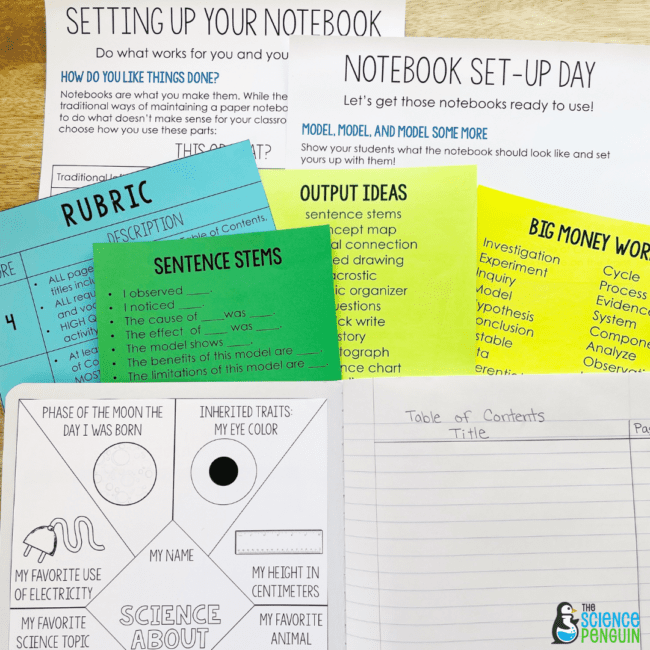 SETTING UP YOUR NOTEBOOK
Do what works for you and you
HOW DO YOU LIKE THINGS DONE?
Notebooks are what you make them. While the
traditional ways of maintaining a paper
to do what doesn't make sense for your
choose how you use these parts:
THIS OR THAT?
Traditional
NOTEBOOK SET-UP DAY
Let's get those notebooks ready to use!
MODEL, MODEL, AND MODEL SOME MORE
Show your students what the notebook should look like and set
yours up with them!
RUBRIC
DESCRIPTION
Table of Contents,
ALL
titles
ALL
and
HIGH
activity
4
At
of
MOST
SENTENCE STEMS
• I observed ____.
• I noticed ____.
• The cause of ____ was ____.
• The effect of ____ was ____.
• The model shows ____.
• The benefits of this model are ____.
• The limitations of this model are ____.
OUTPUT IDEAS
sentence stems
concept map
connection
drawing
acrostic
organizer
questions
write
story
chart
BIG MONEY
Investigation
Experiment
Inquiry
Model
Hypothesis
Conclusion
Cycle
Process
Evidence
System
Analyze
PHASE OF THE MOON THE
DAY I WAS BORN
INHERITED TRAITS:
MY EYE COLOR
MY FAVORITE USE
OF ELECTRICITY
MY NAME
MY HEIGHT IN
CENTIMETERS
MY FAVORITE
SCIENCE TOPIC
SCIENCE
ABOUT
MY FAVORITE
ANIMAL
Table of Contents
Title
THE
SCIENCE
PENGUIN